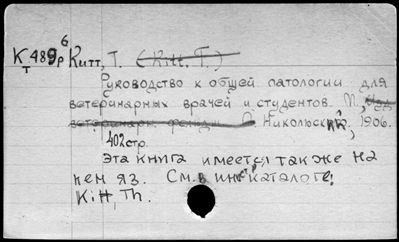 К 489р6 Китт, Т. (Kitt, T.)
т
Руководство к общей патологии для
ветеринарных врачей и студентов. М.,
Никольский, 1906.
402стр.
Эта книга имеется также на
нем яз. См. в инст. каталоге:
Kitt, Th.